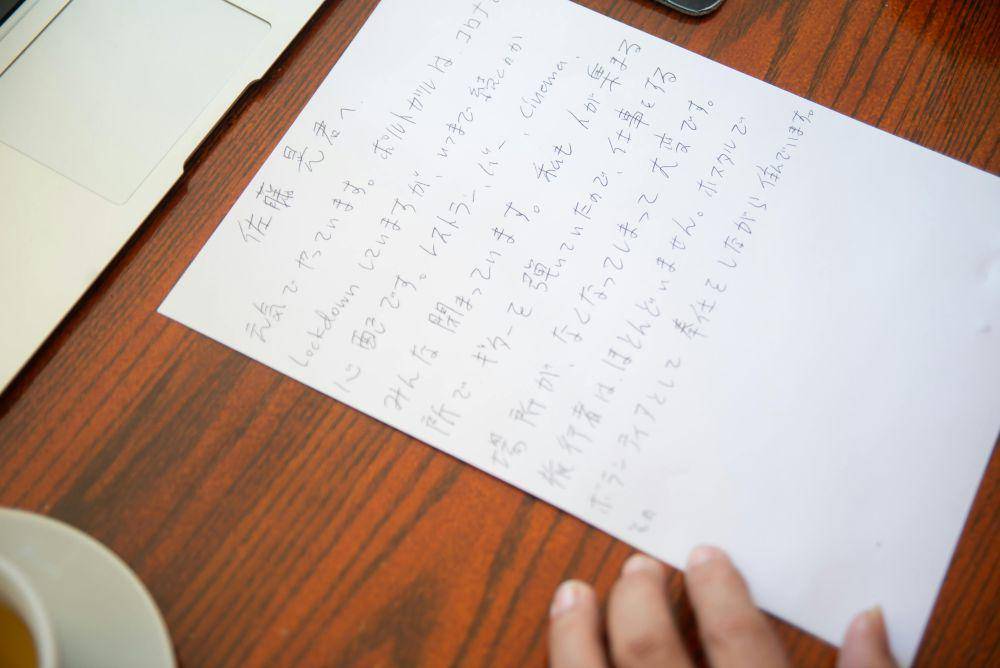 佐藤 晃君へ
元気でやっています。ポルトガルは、コロナで
Lockdownしていますが、いつまで続くのか
心配です。レストラン、バー、cinema、
みんな閉まっています。私も人が集まる
所でギターを弾いていたので、仕事をする
場所が、なくなってしまって大変です。
旅行者は、ほとんどいません。ホステルで
ボランティアとして奉仕をしながら住んでいます。
その